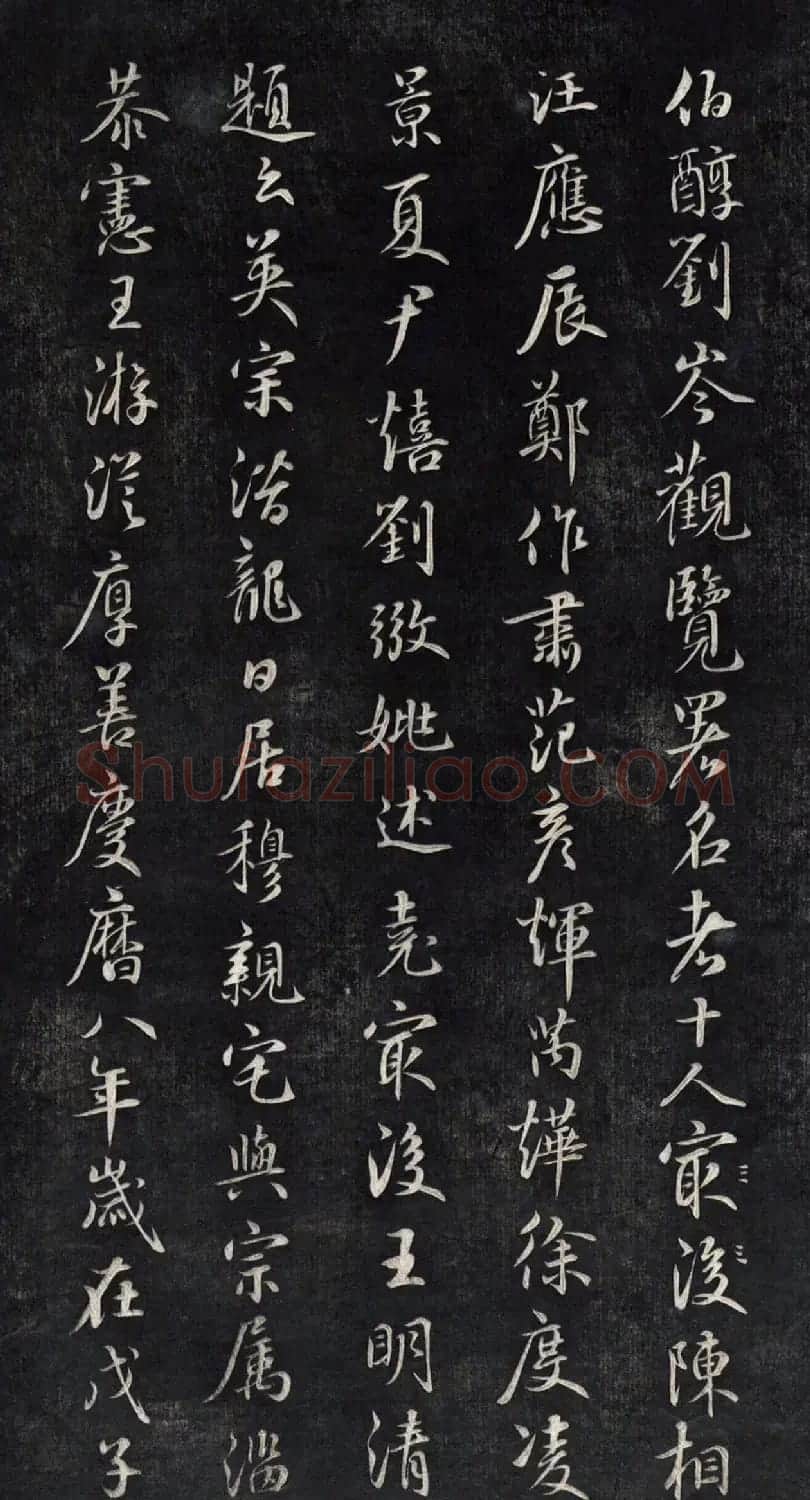 伯醇劉岑觀覽署名者十人㝡後陳相
汪應辰鄭作肅范彥輝芮燁徐度凌
景夏尹熺劉姚述堯㝡後王明清
題云英宗潛龍日居穆親宅與宗属淄
恭憲王游從厚善慶曆八年歲在戊子
Shufaziliao.COM